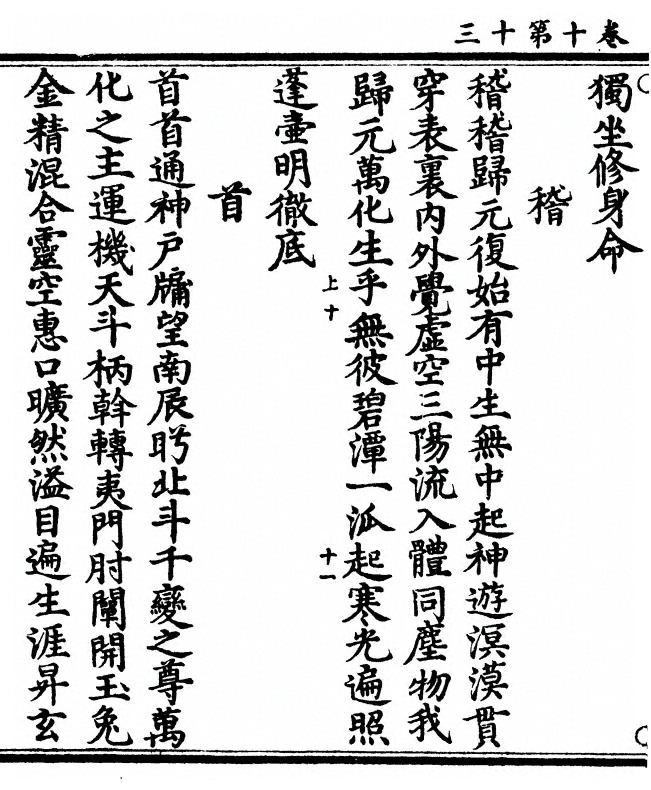 卷十第十三
獨坐修身命
稽
稽稽歸元復始有中生無中起神遊溟漠貫
穿表裏內外覺虛空三陽流入體同塵物我
歸元萬化生乎無彼碧潭一泒起寒光遍照
上十
十一
蓬壺明徹底
首
首首通神戶牖望南辰眄北斗千變之尊萬
化之主運機天斗柄斡轉夷門肘闡開玉兔
金精混合靈空惠口曠然溢目遍生涯昇玄